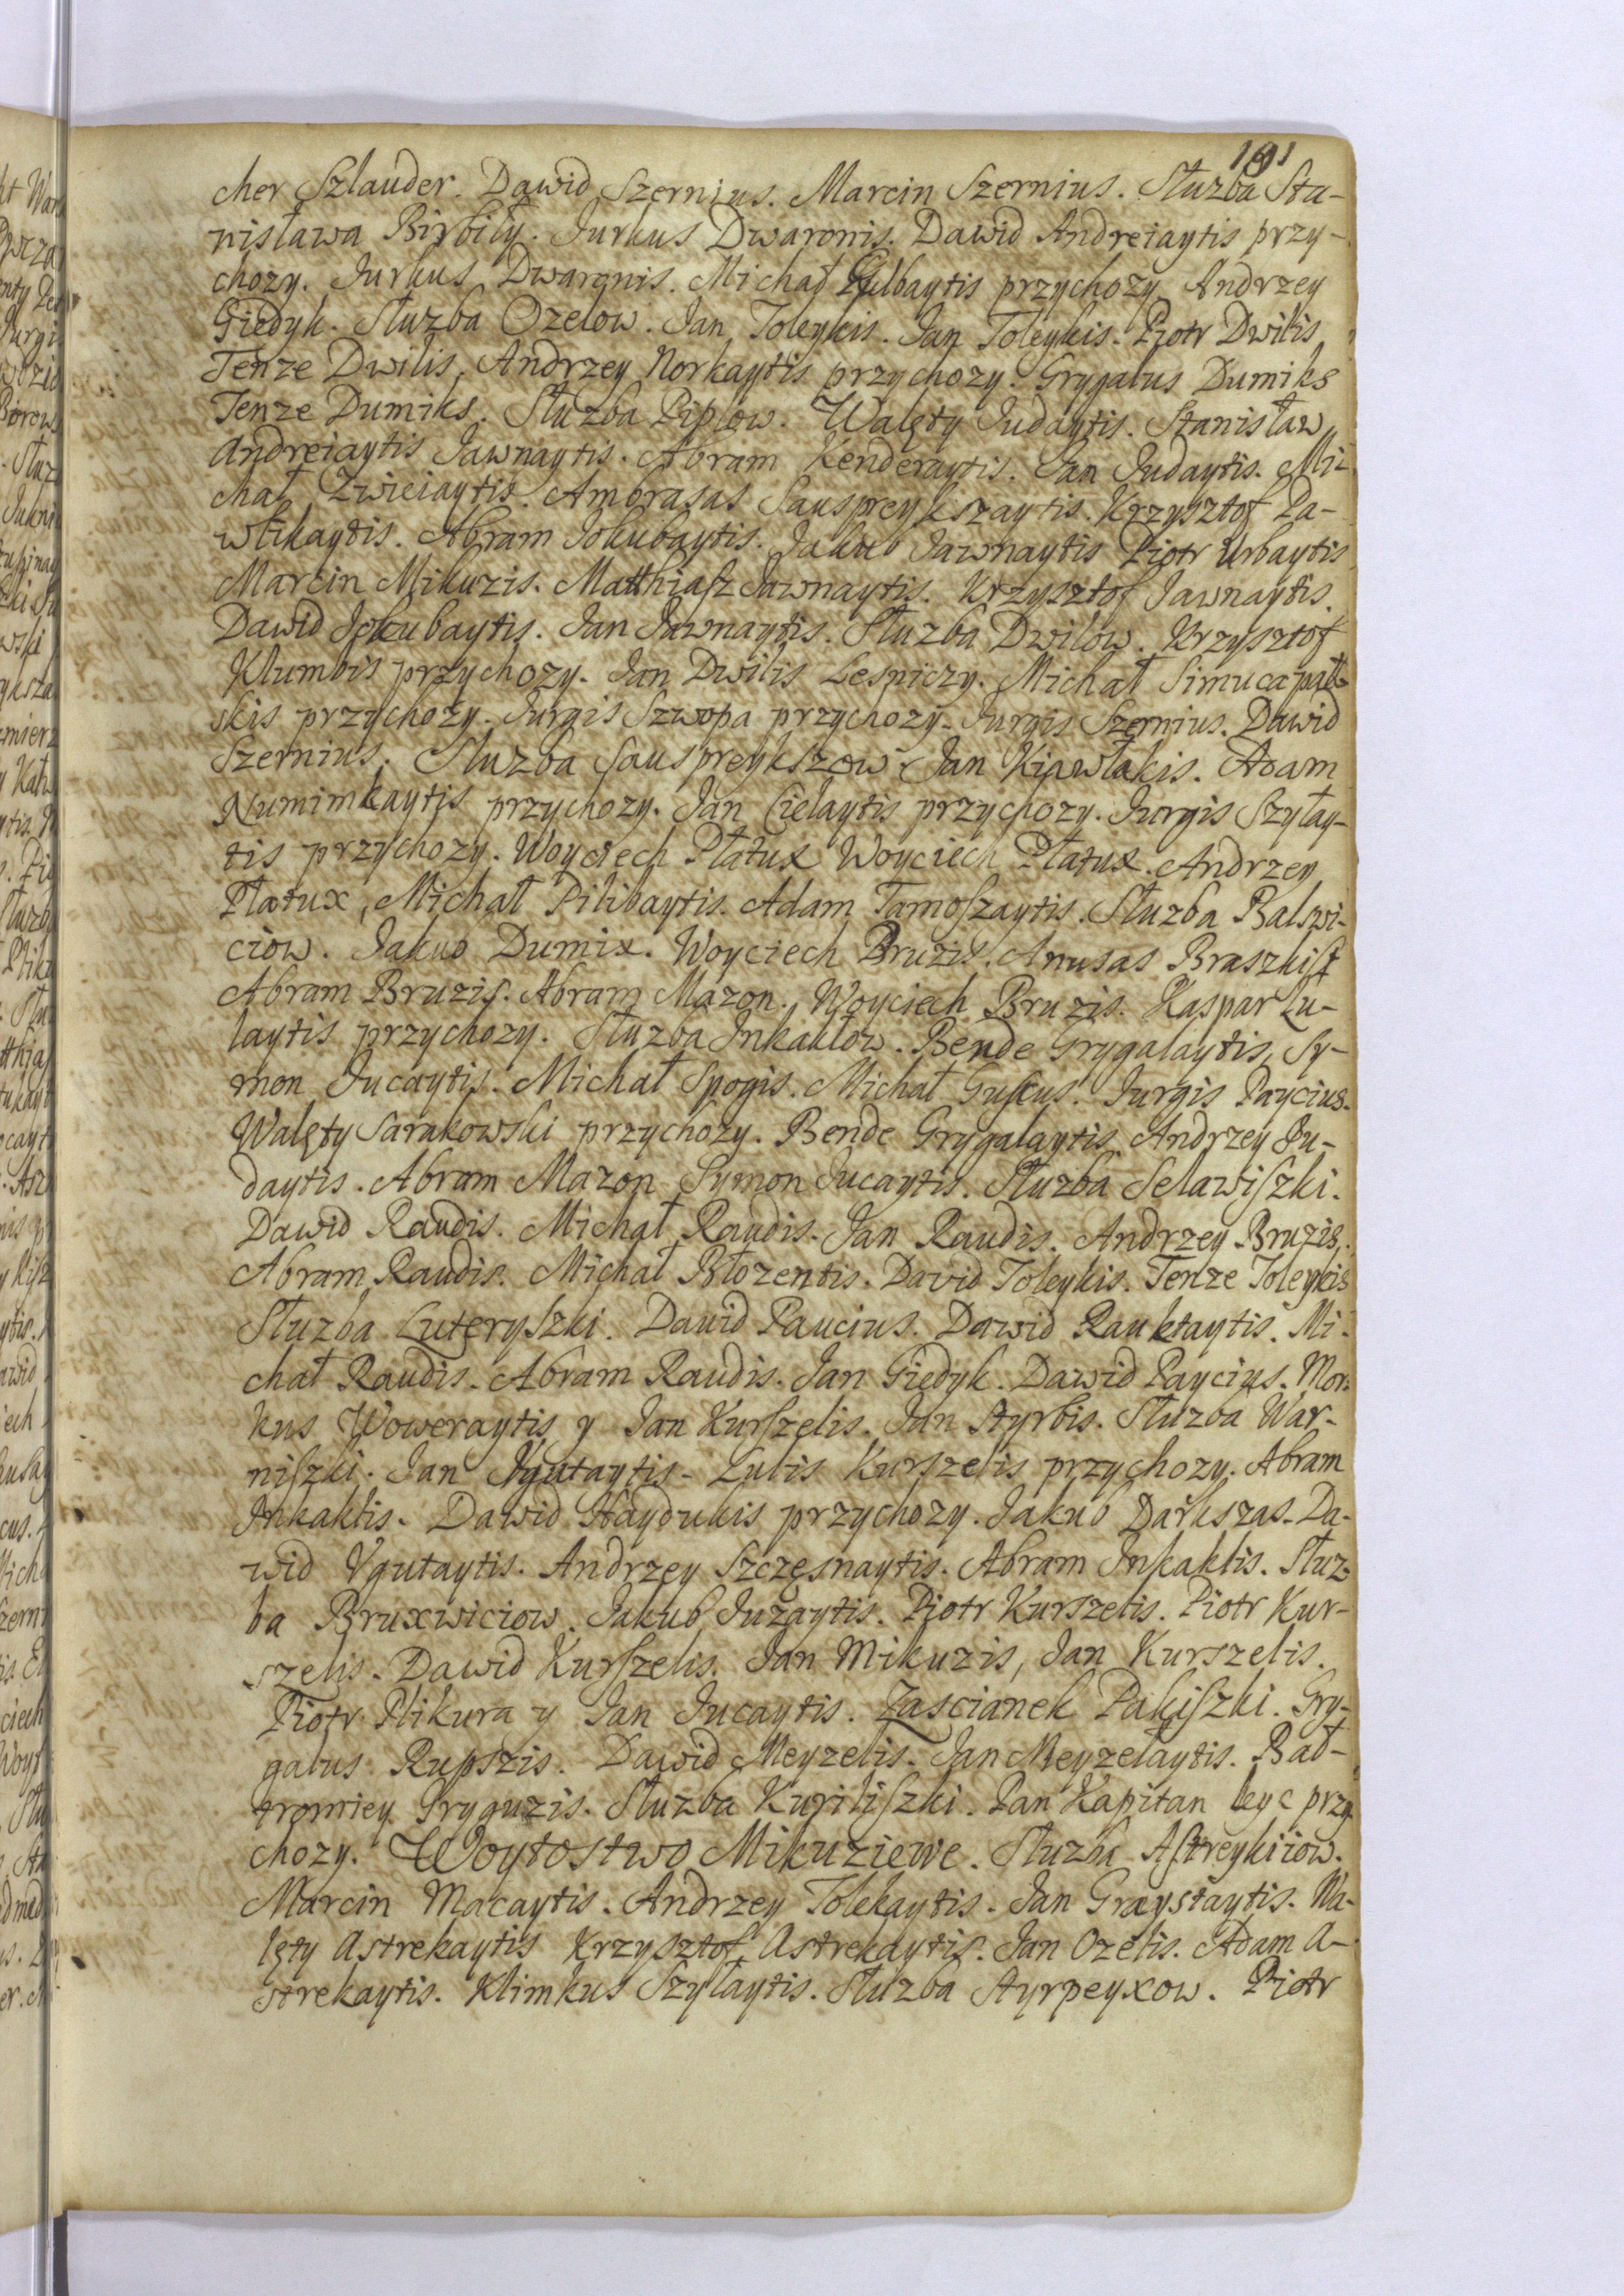 191
cher Szlauder. Dawid Szernius. Marcin Szernius. Słuzba Sta-
nisława Birbiły. Jurkus Dwaronis. Dawid Andreiaytis przy-
chozy. Jurkus Dwaronis. Michał Gulbaytis przychozy Andrzey
Giedyk. Słuzba Ozelow. Jan Toleykis. Jan Toleykis. Piotr Dwilis
Tenze Dwilis, Andrzey Norkaytis przychozy. Grygalus Dumiks
Tenze Dumiks. Słuzba Piplow. Walęty Judaytis. Stanisław
Andreiaytis Jawnaytis. Abram Kenderaytis. Jan Judaytis. Mi-
chał Zwieiaytis. Ambrasas Sauspreykszaytis. Krzysztof Pa-
wlikaytis. Abram Jokubaytis. Jakub Jawnaytis Piotr Urbaytis
Marcin Mikuzis. Matthiasz Jawnaytis. Krzysztof Jawnaytis.
Dawid Jokubaytis. Jan Jawnaytis. Słuzba Dwilow. Krzysztof
Klumbis przychozy. Jan Dwilis Lesniczy. Michał
skis przychozy. Jurgis Szwopa przychozy. Jurgis Szernius. Dawid
Szernius. Słuzba Sauspreykszow. Jan Kiawlakis. Adam
Numimkaytis przychozy. Jan Cielaytis przychozy. Jurgis Szyłay-
tis przychozy. Woyciech Płatux Woyciech Płatux. Andrzey
Płatux, Michał Pilibaytis. Adam Tamoszaytis. Słuzba Balswi-
ciow. Jakub Dumix. Woyciech Bruzis. Anusas Braszkis
Abram Bruzis. Abram Mazon. Woyciech Bruzis. Kaspar Lu-
laytis przychozy. Słuzba Inkaklow. Bende Grygalaytis, Sy-
mon Jucaytis. Michał Spogis. Michał Guskus. Jurgis Paycius.
Walęty Sarakowski przychozy. Bende Grygalaytis Andrzey Bu-
daytis. Abram Mazon Symon Jucaytis. Słuzba Selawiszki.
Dawid Raudis. Michał Raudis. Jan Raudis. Andrzey Bruzis,
Abram Raudis. Michał Błozentis. David Toleykis. Tenze Toleykis
Słuzba Luteryszki. Dawid Paucius. Dawid Rauktaytis. Mi-
chał Raudis. Abram Raudis. Jan Giedyk. Dawid Paycius. Mor-
kus Woweraytis y Jan Kurszelis. Jan Styrbis. Słuzba War-
niszki. Jan Jgutaytis. Lulis Kurszelis przychozy. Abram
Inkaklis. Dawid Haydukis przychozy. Jakub Darkszas. Da-
wid Vgutaytis. Andrzey Szczęsnaytis. Abram Inkaklis. Słuz-
ba Bruxwiciow. Jakub Juzaytis. Piotr Kurszelis. Piotr Kur-
szelis. Dawid Kurszelis. Jan Mikuzis, Jan Kurszelis.
Piotr Plikura y Jan Jucaytis. Zascianek Pakiszki. Gry-
galus Rupszis. Dawid Meyzelis. Jan Meyzelaytis. Bał-
tromiey Gryguzis. Słuzba Kuyiliszki. Pan Kapitan leyc przy
chozy. Woytostwo Mikuziewe. Słuzba Astreykiiow.
Marcin Macaytis. Andrzey Tolekaytis. Jan Graystaytis. Wa-
lęty Astrekaytis Krzysztof Astrekaytis. Jan Ozelis. Adam A-
strekaytis. Klimkus Szyłaytis. Słuzba Styrpeyxow. Piotr